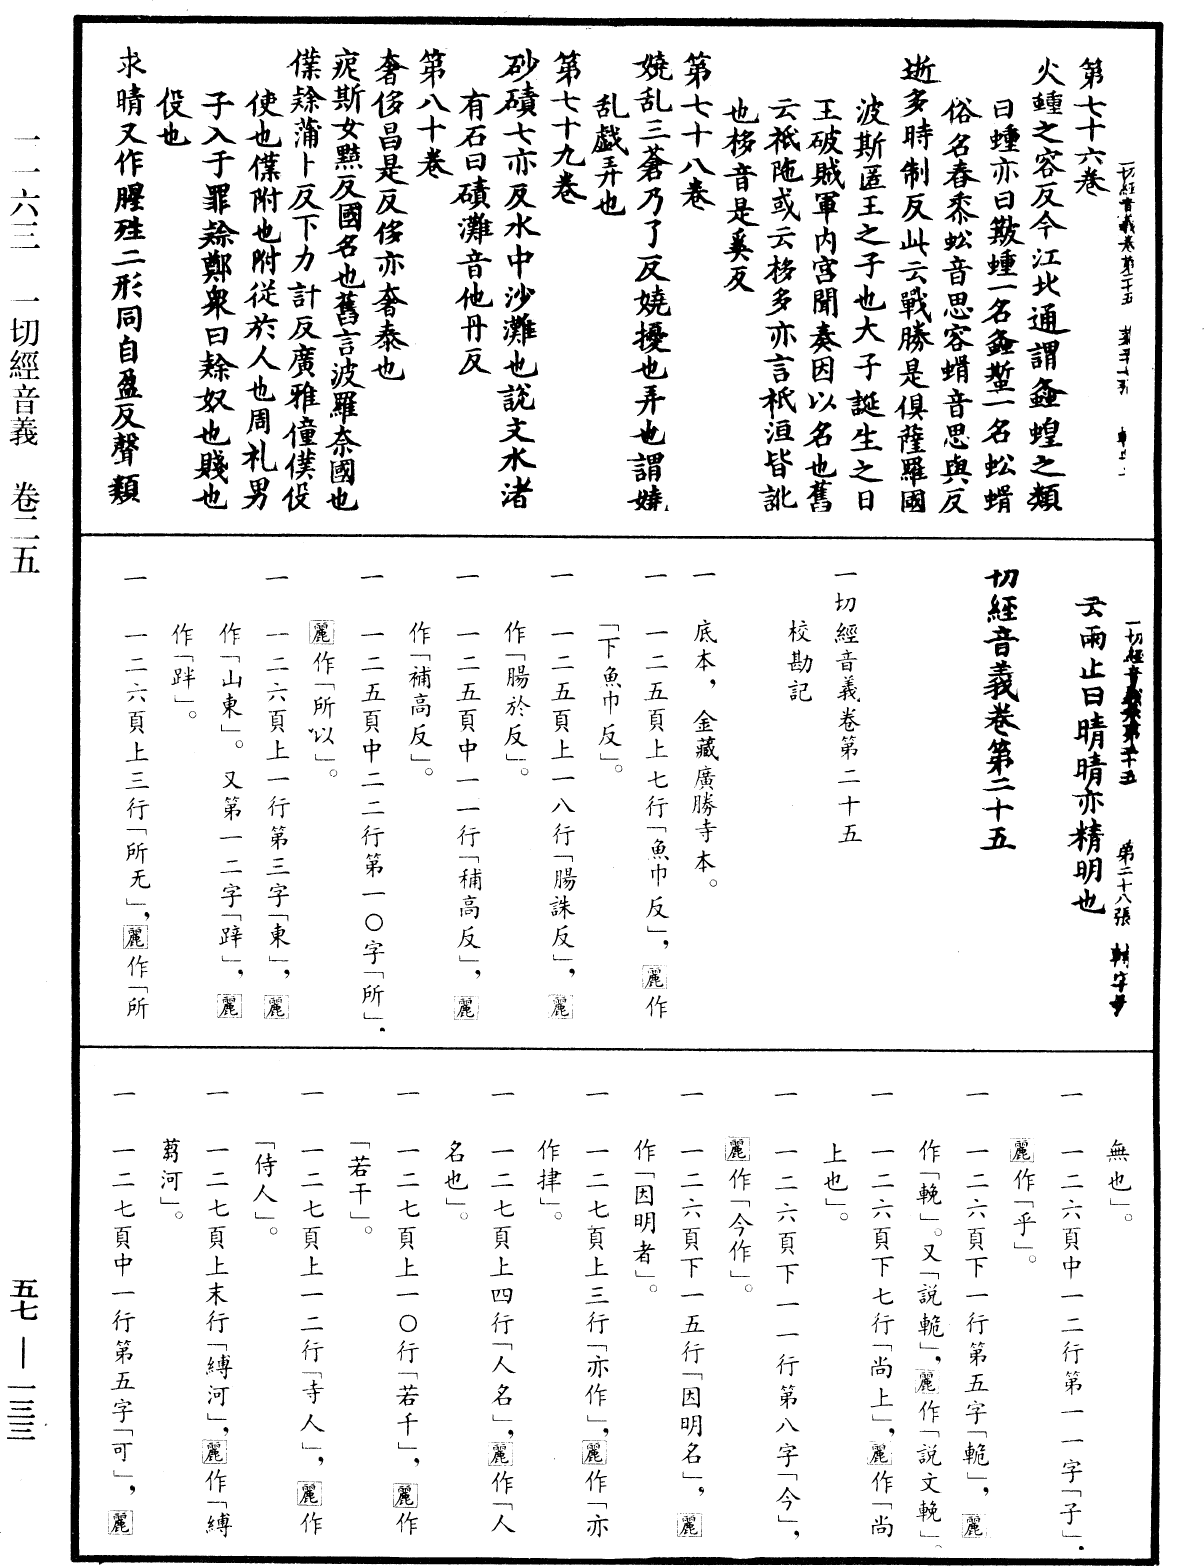 一一六三　一切經音義　卷二五
五七—一三三
第七十六卷
火蝩之容反今江北通謂螽蝗之類
曰蝩亦曰䈀蝩一名螽蟴一名蚣蝑
俗名舂黍蚣音思容蝑音思與反
逝多時制反此云戰勝是俱薩羅國
波斯匿王之子也大子誕生之日
王破賊軍内宮聞奏因以名也舊
云祇陁或云移多亦言祇洹皆訛
也移音是奚反
第七十八卷
嬈乱三蒼乃了反嬈擾也弄也謂嬈
乱戲弄也
第七十九卷
砂磧七亦反水中沙灘也說文水渚
有石曰磧灘音他丹反
第八十卷
奢侈昌是反侈亦奢泰也
痆斯女黠反國名也舊言波羅奈國也
僕隸蒲卜反下力計反廣雅僮僕伇
使也僕附也附從於人也周礼男
子入于罪隸鄭衆曰隸奴也賤也
伇也
求晴又作腥殅二形同自盈反聲類
云雨止曰晴晴亦精明也
切經音義卷第二十五
一切經音義卷第二十五
校勘記
一　底本，金藏廣勝寺本。
一　一二五頁上七行「魚巾反」，麗作
「下魚巾反」。
一　一二五頁上一八行「腸誅反」，麗
作「腸於反」。
一　一二五頁中一一行「䅵高反」，麗
作「補高反」。
一　一二五頁中二二行第一〇字「所」，
麗作「所以」。
一　一二六頁上一行第三字「東」，麗
作「山東」。又第一二字「辟」，麗
作「跘」。
一　一二六頁上三行「所无」，麗作「所
無也」。
一　一二六頁中一二行第一一字「子」，
麗作「乎」。
一　一二六頁下一行第五字「軛」，麗
作「輓」。又「説軛」，麗作「説文輓」。
一　一二六頁下七行「尚上」，麗作「尚
上也」。
一　一二六頁下一一行第八字「今」，
麗作「今作」。
一　一二六頁下一五行「因明名」，麗
作「因明者」。
一　一二七頁上三行「亦作」，麗作「亦
作捙」。
一　一二七頁上四行「人名」，麗作「人
名也」。
一　一二七頁上一〇行「若千」，麗作
「若干」。
一　一二七頁上一二行「寺人」，麗作
「侍人」。
一　一二七頁上末行「縛河」，麗作「縛
蒭河」。
一　一二七頁中一行第五字「可」，麗